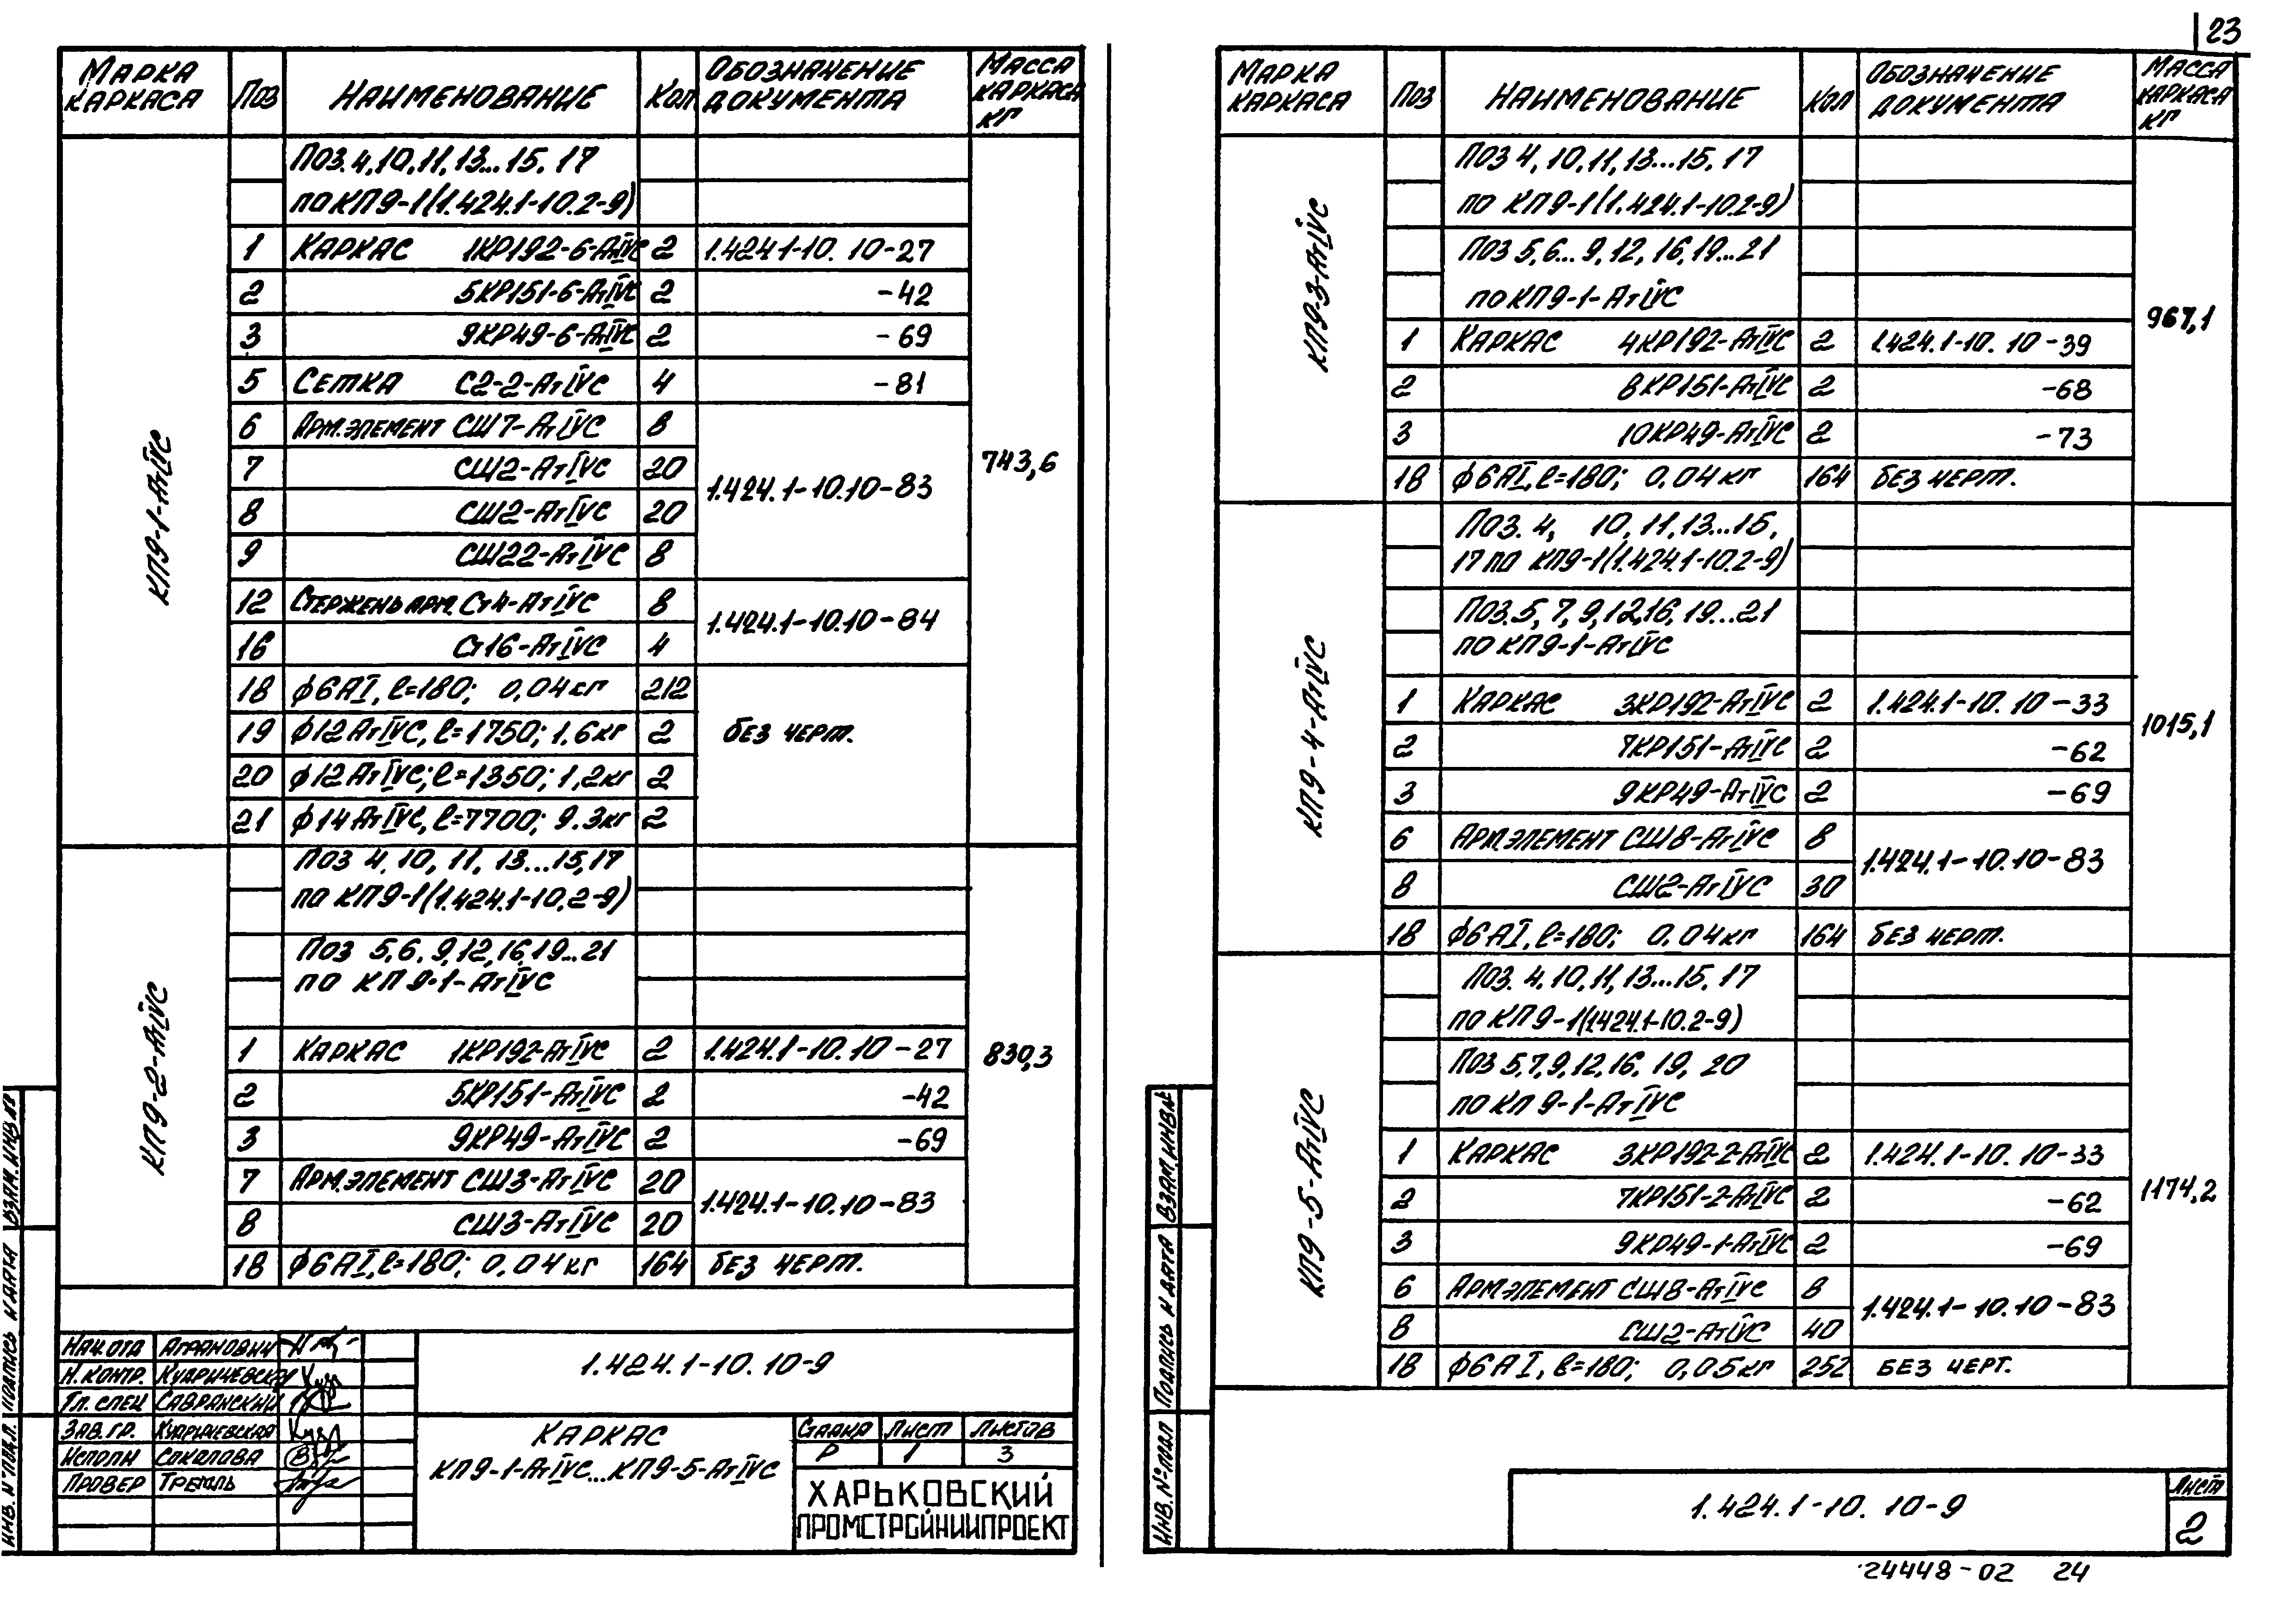 23
МАРКА КАРКАСА ПОЗ НАИМЕНОВАНИЕ КОЛ ОБОЗНАЧЕНИЕ ДОКУМЕНТА МАССА КАРКАСА КГ
КП9-1-АтIVС
ПОЗ. 4, 10, 11, 13...15, 17
ПО КП9-1(1.424.1-10.2-9)
1 КАРКАС 1КР192-6-АтIVС 2 1.424.1-10. 10-27
2 5КР151-6-АтIVС 2 -42
3 9КР49-6-АтIVС 2 -69
5 СЕТКА С2-2-АтIVС 4 -81
6 АРМ.ЭЛЕМЕНТ СШ7-АтIVС 8
7 СЩ2-АтIVС 20
1.424.1-10.10-83
743,6
8 СШ2-АтIVС 20
9 СШ22-АтIVС 8
12 СТЕРЖЕНЬ АРМ. Ст4-АтIVС 8
1.424.1-10.10-84
16 Ст16-АтIVС 4
18 ф6АI, ℓ=180; 0,04кг 212
19 ф12АтIVС, ℓ=1750; 1,6кг 2
БЕЗ ЧЕРТ.
20 ф12АтIVС; ℓ=1350; 1,2кг 2
21 ф14АтIVС, ℓ=7700; 9.3кг 2
КП9-2-АтIVС
ПОЗ 4, 10, 11, 13...15, 17
ПО КП9-1(1.424.1-10.2-9)
ПОЗ 5,6, 9,12,16,19...21
ПО КП9-1-АтIVС
1 КАРКАС 1КР192-АтIVС 2 1.424.1-10.10-27
830,3
2 5КР151-АтIVС 2 -42
3 9КР49-АтIVС 2 -69
7 АРМ.ЭЛЕМЕНТ СШ3-АтIVС 20
1.424.1-10.10-83
8 СШ3-АтIVС 20
18 ф6АI, ℓ=180; 0,04кг 164 БЕЗ ЧЕРТ.
НАЧ.ОТД АГРАНОВИЧ
Н.КОНТР. КУДРИЧЕВСКАЯ
ГЛ. СПЕЦ САВРАНСКИЙ
ЗАВ. ГР. КУДРИЧЕВСКАЯ
ИСПОЛН СОКОЛОВА
ПРОВЕР ТРЕГУЛЬ
1.424.1-10. 10-9
КАРКАС
КП9-1-АтIVС...КП9-5-АтIVС
СТАДИЯ ЛИСТ ЛИСТОВ
Р 1 3
ХАРЬКОВСКИЙ
ПРОМСТРОЙНИИПРОЕКТ
ИНВ. №ПОДЛ. ПОДПИСЬ И ДАТА ВЗАМ.ИНВ.№
МАРКА КАРКАСА ПОЗ НАИМЕНОВАНИЕ КОЛ ОБОЗНАЧЕНИЕ ДОКУМЕНТА МАССА КАРКАСА КГ
КП9-3-АтIVС
ПОЗ 4, 10, 11, 13...15, 17
ПО КП9-1(1.424.1-10.2-9)
ПОЗ 5, 6...9, 12, 16, 19...21
ПО КП9-1-АтIVС
967,1
1 КАРКАС 4КР192-АтIVС 2 1.424.1-10. 10-39
2 8КР151-АтIVС 2 -68
3 10КР49-АтIVС 2 -73
18 ф6АI, ℓ=180; 0,04кг 164 БЕЗ ЧЕРТ.
КП9-4-АтIVС
ПОЗ. 4, 10, 11, 13...15,
17 ПО КП9-1(1.424.1-10.2-9)
ПОЗ. 5, 7, 9, 12,16, 19...21
ПО КП9-1-АтIVС
1 КАРКАС 3КР192-АтIVС 2 1.424.1-10. 10-33
1015,1
2 7КР151-АтIVС 2 -62
3 9КР49-АтIVС 2 -69
6 АРМ.ЭЛЕМЕНТ СШ8-АтIVС 8
1.424.1-10.10-83
8 СШ2-АтIVС 30
18 ф6АI, ℓ=180; 0,04кг 164 БЕЗ ЧЕРТ.
КП9-5-АтIVС
ПОЗ. 4, 10, 11, 13...15, 17
ПО КП9-1(1.424.1-10.2-9)
ПОЗ 5,7,9,12,16, 19, 20
ПО КП9-1-АтIVС
1 КАРКАС 3КР192-2-АтIVС 2 1.424.1-10. 10-33
2 7КР151-2-АтIVС 2 -62
1174,2
3 9КР49-1-АтIVС 2 -69
6 АРМ.ЭЛЕМЕНТ СШ8-АтIVС 8
1.424.1-10.10-83
8 СШ2-АтIVС 40
18 ф6АI, ℓ=180; 0,05кг 252 БЕЗ ЧЕРТ.
ИНВ. №ПОДЛ ПОДПИСЬ И ДАТА ВЗАМ.ИНВ№
1.424.1-10. 10-9
ЛИСТ
2
24448-02 24